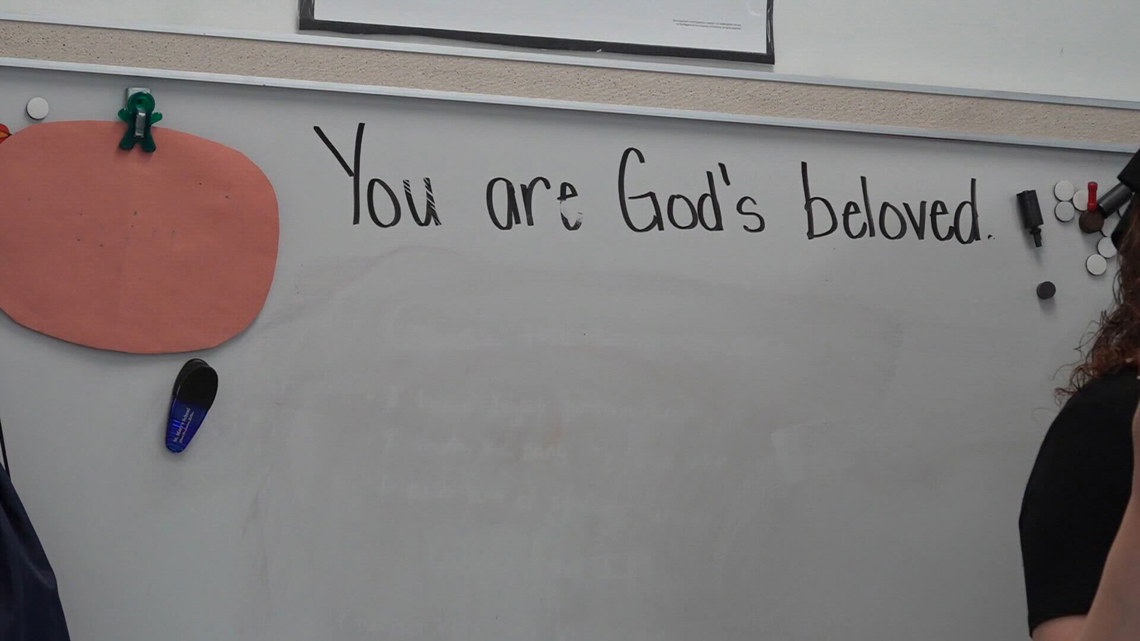 You are God's beloved.